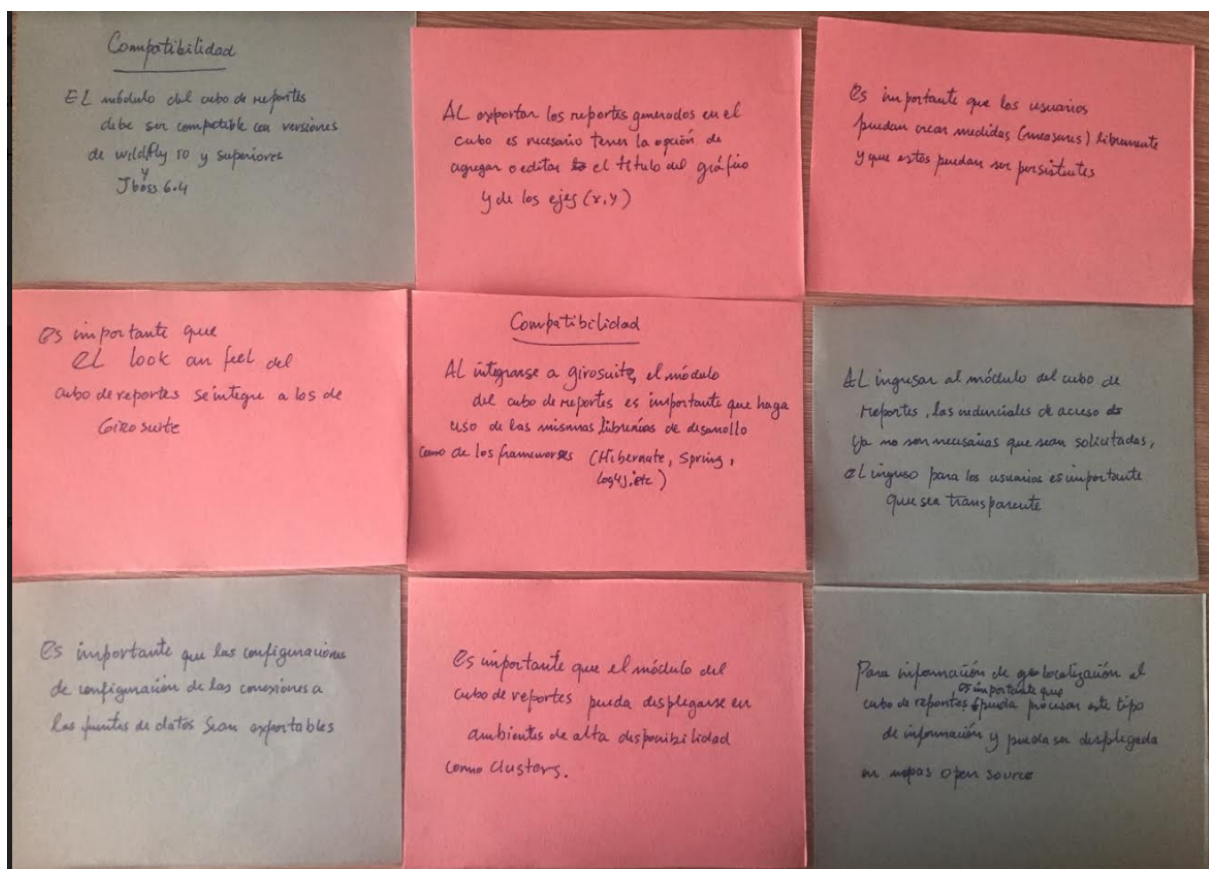 Compatibilidad
EL módulo del cubo de reportes
debe ser compatible con versiones
de wildfly 10 y superiores
y
Jboss 6.4
AL exportar los reportes generados en el
cubo es necesario tener la opción de
agregar o editar el título del gráfico
y de los ejes (x,y)
Es importante que los usuarios
puedan crear medidas (measures) libremente
y que estas puedan ser persistentes
Es importante que
el look an feel del
cubo de reportes se integre a los de
Giro suite
Compatibilidad
AL integrarse a girosuite, el módulo
del cubo de reportes es importante que haga
uso de las mismas librerías de desarrollo
como de los frameworks (Hibernate, Spring,
log4j, etc)
AL ingresar al módulo del cubo de
reportes, las credenciales de acceso
ya no son necesarias que sean solicitadas,
el ingreso para los usuarios es importante
que sea transparente
Es importante que las configuraciones
de configuración de las conexiones a
las fuentes de datos sean exportables
Es importante que el módulo del
cubo de reportes pueda desplegarse en
ambientes de alta disponibilidad
como clusters.
Para información de geolocalización el
es importante que
cubo de reportes pueda procesar este tipo
de información y pueda ser desplegada
en mapas open source